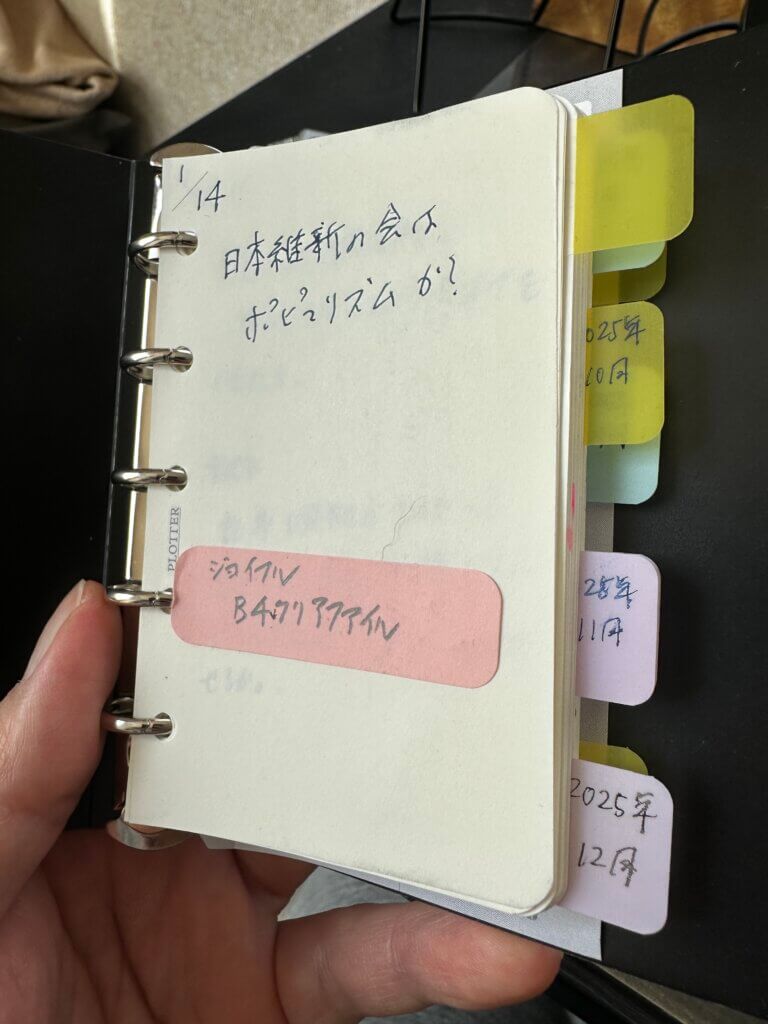 1/14
日本維新の会は
ポピュリズムか?
PLOTTER
ジョイフル
B4クリアファイル
2025年
10月
11月
2025年
12月